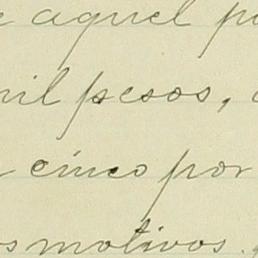 aquel
mil pesos,
cinco por
os motivos.